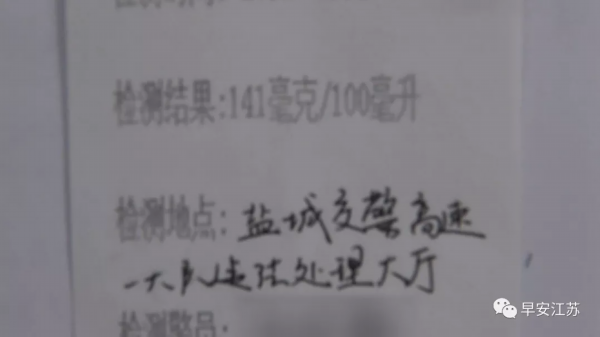 检测结果:141毫克/100毫升
检测地点: 盐城交警高速
一大队违法处理大厅
检测警员:
早安江苏